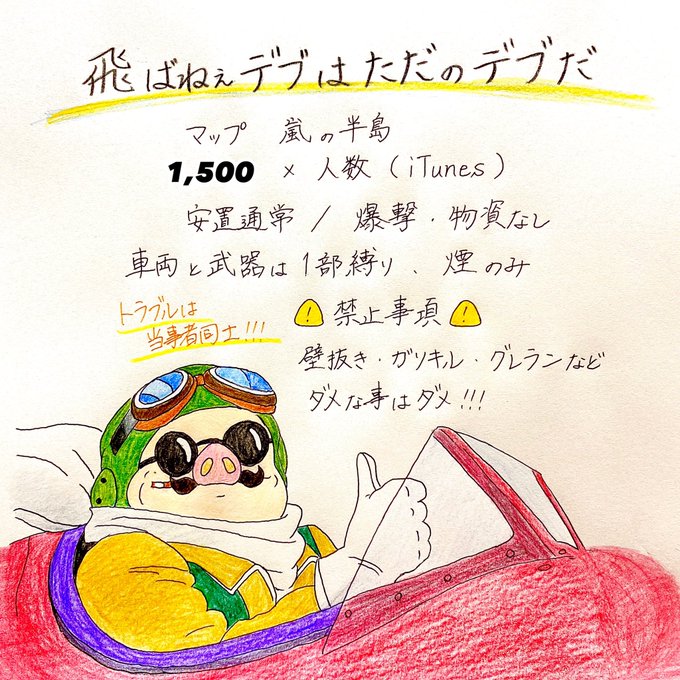 飛ばねぇデブはただのデブだ
マップ 嵐の半島
1,500 × 人数 (iTunes)
安置通常 / 爆撃・物資なし
車両と武器は1部縛り、煙のみ
トラブルは
当事者同士!!!
! 禁止事項 !
壁抜き・ガソキル・グレランなど
ダメな事はダメ!!!